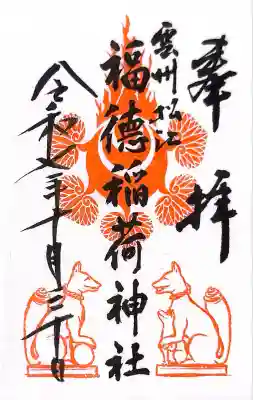 奉拝
雲州松江
福德稲荷神社
令和七年十月三十日